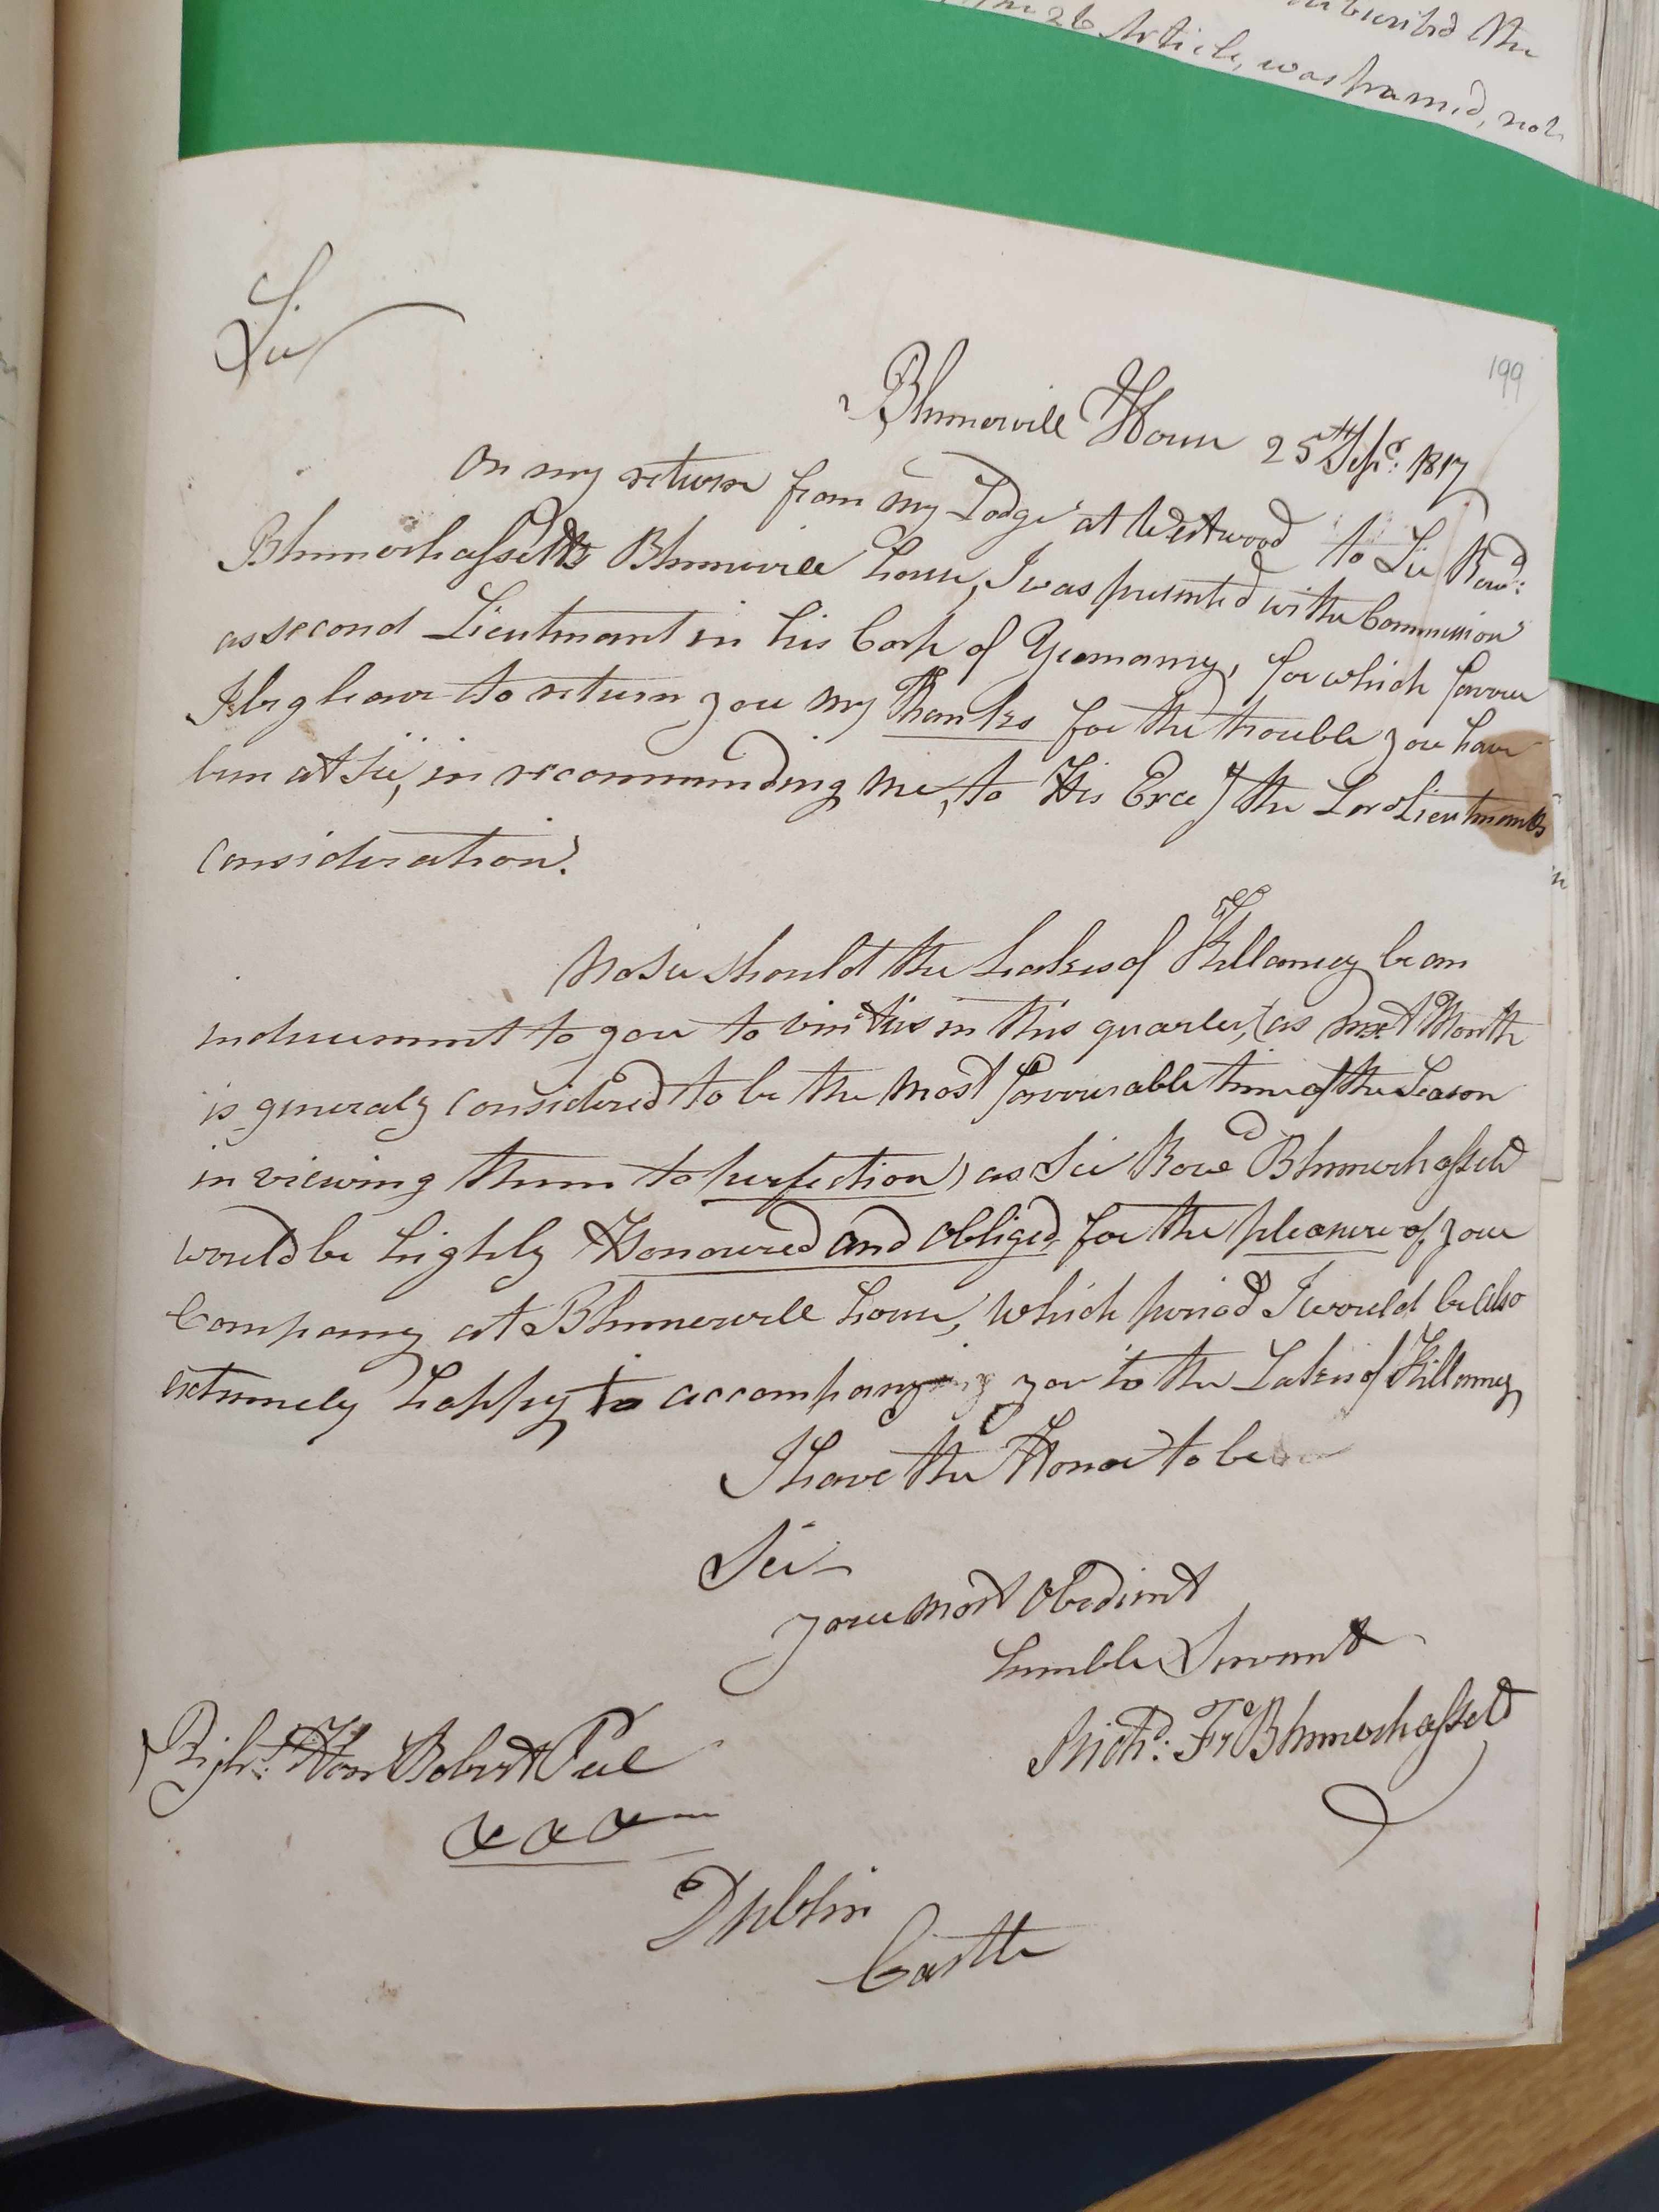 subscribed the
the 26 Article, was framed, not
199
Sir
Blennerville House 25th Sepr. 1817
On my return from my Lodge at Westwood to Sir Rowd:
Blennerhassetts Blennerville house, I was presented with the Commission
as second Lieutenant in his Corps of Yeomanry, for which favour
I beg leave to return you my Thanks for the trouble you have
been at Sir, in recommending me, to His Excey the Lord Lieutenants
Consideration.
Now Sir should the Lakes of Killarney be an
inducement to you to visit us in this quarter, (as next Month
is generaly considered to be the most favourable time of the Season
in viewing them to perfection) as Sir Rowd Blennerhassett
would be highly Honoured and obliged, for the pleasure of your
Company at Blennerville house, which period I would be also
extremely happy to accompanying you to the Lakes of Killarney
I have the Honor to be
Sir
your most Obedient
humble Servant
Richd: Fr Blennerhassett
Right. Hon Robert Peel
Dublin
Castle